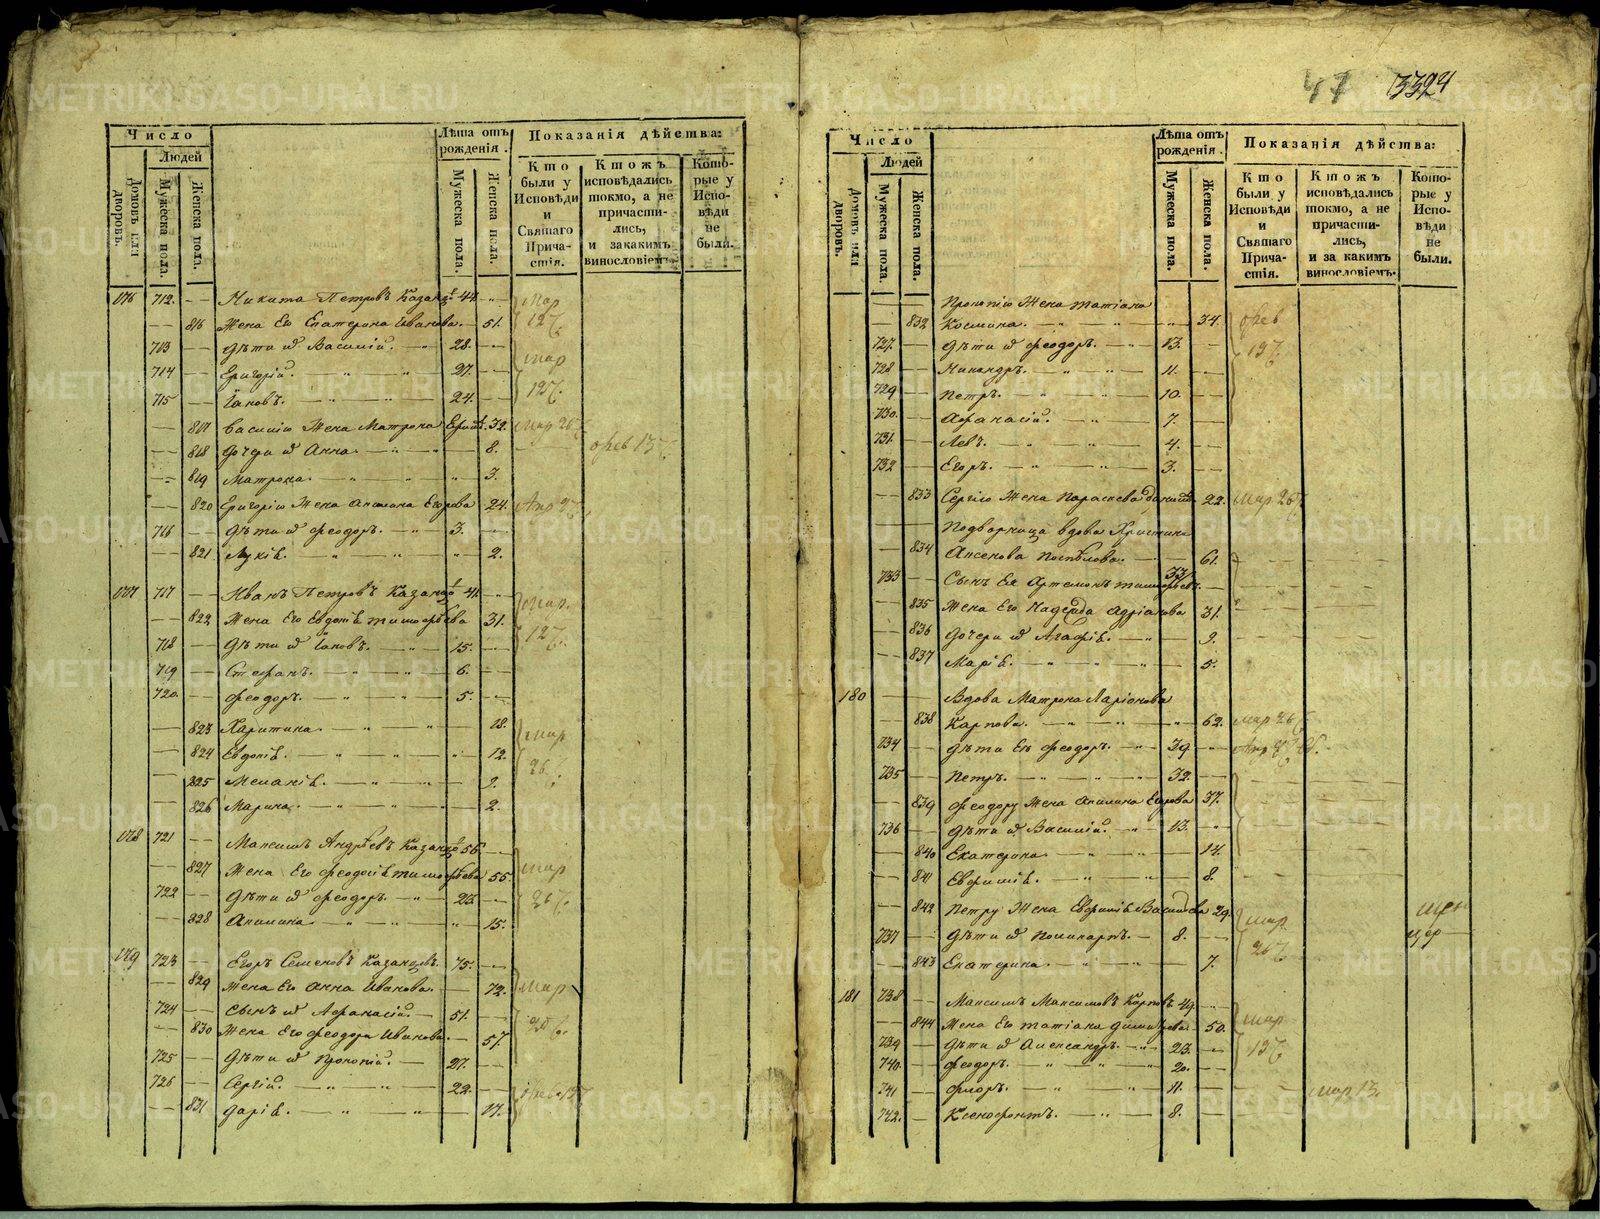 47 3324
Число
Людей
Домовъ или дворовъ.
Мужеска пола.
Женска пола.
Лѣта отъ рожденія.
Мужеска пола.
Женска пола.
Показанія дѣйства:
Кто были у Исповѣди и Святаго Причастія.
Ктожъ исповѣдались токмо, а не причастились, и за какимъ винословіемъ.
Которые у Исповѣди не были.
176 712. Никита Петровъ Казанц. 44.
816 Жена Его Екатерина Иванова. 51.
713 Дѣти ихъ Василій. 28.
714 Григорій. 27.
715 Іаковъ. 24.
817 Василію Жена Матрона 32. Мар 26
818 Дочери ихъ Анна. 8. Фев 13
819 Матрона. 3.
820 Григорію Жена Акилина Егорова 24. Апр
716 Дѣти ихъ Феодоръ. 3.
821 Лукія. 2.
177 717 Иванъ Петровъ Казанц. 41.
822 Жена Его Евдокія Тимофѣева 31.
718 Дѣти ихъ Іаковъ. 15.
719 Стефанъ. 6.
720. Феодоръ. 5.
823 Харитина. 18.
824 Евдокія. 12.
825 Меланія. 9.
826 Марина. 2.
178 721 Максимъ Андрѣевъ Казанц. 56.
827 Жена Его Феодосія Тимофѣева 55.
722 Дѣти ихъ Феодоръ. 23.
828 Акилина. 15.
179 723 Егоръ Семеновъ Казанцовъ. 75.
829 Жена Его Анна Иванова. 72.
724 Сынъ ихъ Афанасій. 51.
830 Жена Его Феодора Иванова. 57.
725 Дѣти ихъ Прокопій. 27.
726 Сергій. 22.
831 Дарія. 17.
Число
Людей
Домовъ или дворовъ.
Мужеска пола.
Женска пола.
Лѣта отъ рожденія.
Мужеска пола.
Женска пола.
Показанія дѣйства:
Кто были у Исповѣди и Святаго Причастія.
Ктожъ исповѣдались токмо, а не причастились, и за какимъ винословіемъ.
Которые у Исповѣди не были.
Прокопію Жена Татіана
832 Космина. 34. Фев
727. Дѣти ихъ Феодоръ. 13.
728 Никандръ. 11.
729 Петръ. 10.
730. Афанасій. 7.
731. Левъ. 4.
732 Егоръ. 3.
833 Сергію Жена Параскева 22. Мар 26
Подворница вдова Христина
834 Аксенова Поспѣлова. 61.
733 Сынъ Ея Артемонъ Тимофѣевъ. 33
835 Жена Его Надежда Адріанова 31.
836 Дочери ихъ Агафія. 9.
837 Марія. 5.
180 Вдова Матрона Ларіонова
838 Карпова. 62. Мар 26
734 Дѣти Ея Феодоръ. 39
735 Петръ. 32.
839 Феодору Жена Акилина Егорова 37.
736 Дѣти ихъ Василій. 13.
840 Екатерина. 14.
841 Евфимія. 8.
842 Петру Жена Евфимія Васильева 29. Мар
737 Дѣти ихъ Поликарпъ. 8. 26
843 Екатерина. 7.
181 738 Максимъ Максимовъ Карповъ 49.
844 Жена Его Татіана Димитрова. 50. Мар
739 Дѣти ихъ Александръ. 23. 13
740. Феодоръ. 20.
741 Флоръ. 11. Мар 13.
742. Ксенофонтъ. 8.
METRIKI.GASO-URAL.RU